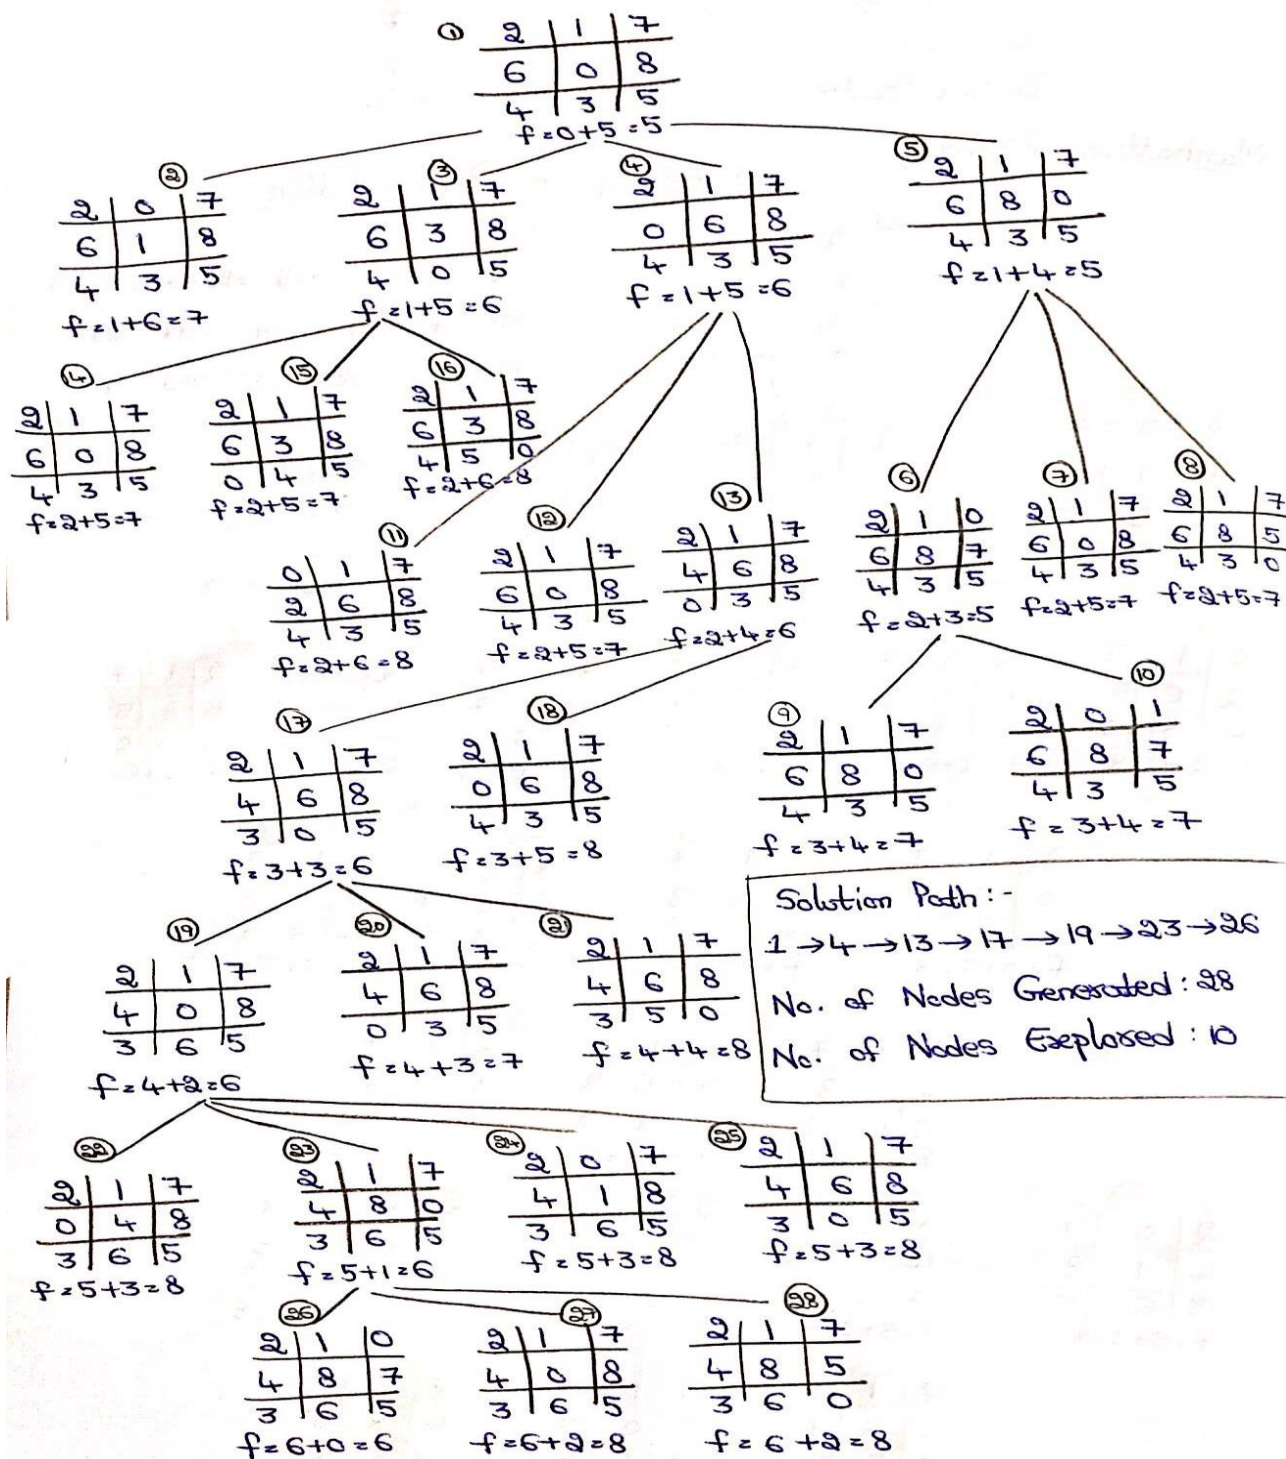 ①
2 1 7
6 0 8
4 3 5
f=0+5=5
②
2 0 7
6 1 8
4 3 5
f=1+6=7
③
2 1 7
6 3 8
4 0 5
f=1+5=6
④
2 1 7
0 6 8
4 3 5
f=1+5=6
⑤
2 1 7
6 8 0
4 3 5
f=1+4=5
⑭
2 1 7
6 0 8
4 3 5
f=2+5=7
⑮
2 1 7
6 3 8
0 4 5
f=2+5=7
⑯
2 1 7
6 3 8
4 5 0
f=2+6=8
⑪
0 1 7
2 6 8
4 3 5
f=2+6=8
⑫
2 1 7
6 0 8
4 3 5
f=2+5=7
⑬
2 1 7
4 6 8
0 3 5
f=2+4=6
⑥
2 1 0
6 8 7
4 3 5
f=2+3=5
⑦
2 1 7
6 0 8
4 3 5
f=2+5=7
⑧
2 1 7
6 8 5
4 3 0
f=2+5=7
⑰
2 1 7
4 6 8
3 0 5
f=3+3=6
⑱
2 1 7
0 6 8
4 3 5
f=3+5=8
⑨
2 1 7
6 8 0
4 3 5
f=3+4=7
⑩
2 0 1
6 8 7
4 3 5
f=3+4=7
Solution Path:-
1→4→13→17→19→23→26
No. of Nodes Generated: 28
No. of Nodes Explored: 10
⑲
2 1 7
4 0 8
3 6 5
f=4+2=6
⑳
2 1 7
4 6 8
0 3 5
f=4+3=7
㉑
2 1 7
4 6 8
3 5 0
f=4+4=8
㉒
2 1 7
0 4 8
3 6 5
f=5+3=8
㉓
2 1 7
4 8 0
3 6 5
f=5+1=6
㉔
2 0 7
4 1 8
3 6 5
f=5+3=8
㉕
2 1 7
4 6 8
3 0 5
f=5+3=8
㉖
2 1 0
4 8 7
3 6 5
f=6+0=6
㉗
2 1 7
4 0 8
3 6 5
f=6+2=8
㉘
2 1 7
4 8 5
3 6 0
f=6+2=8